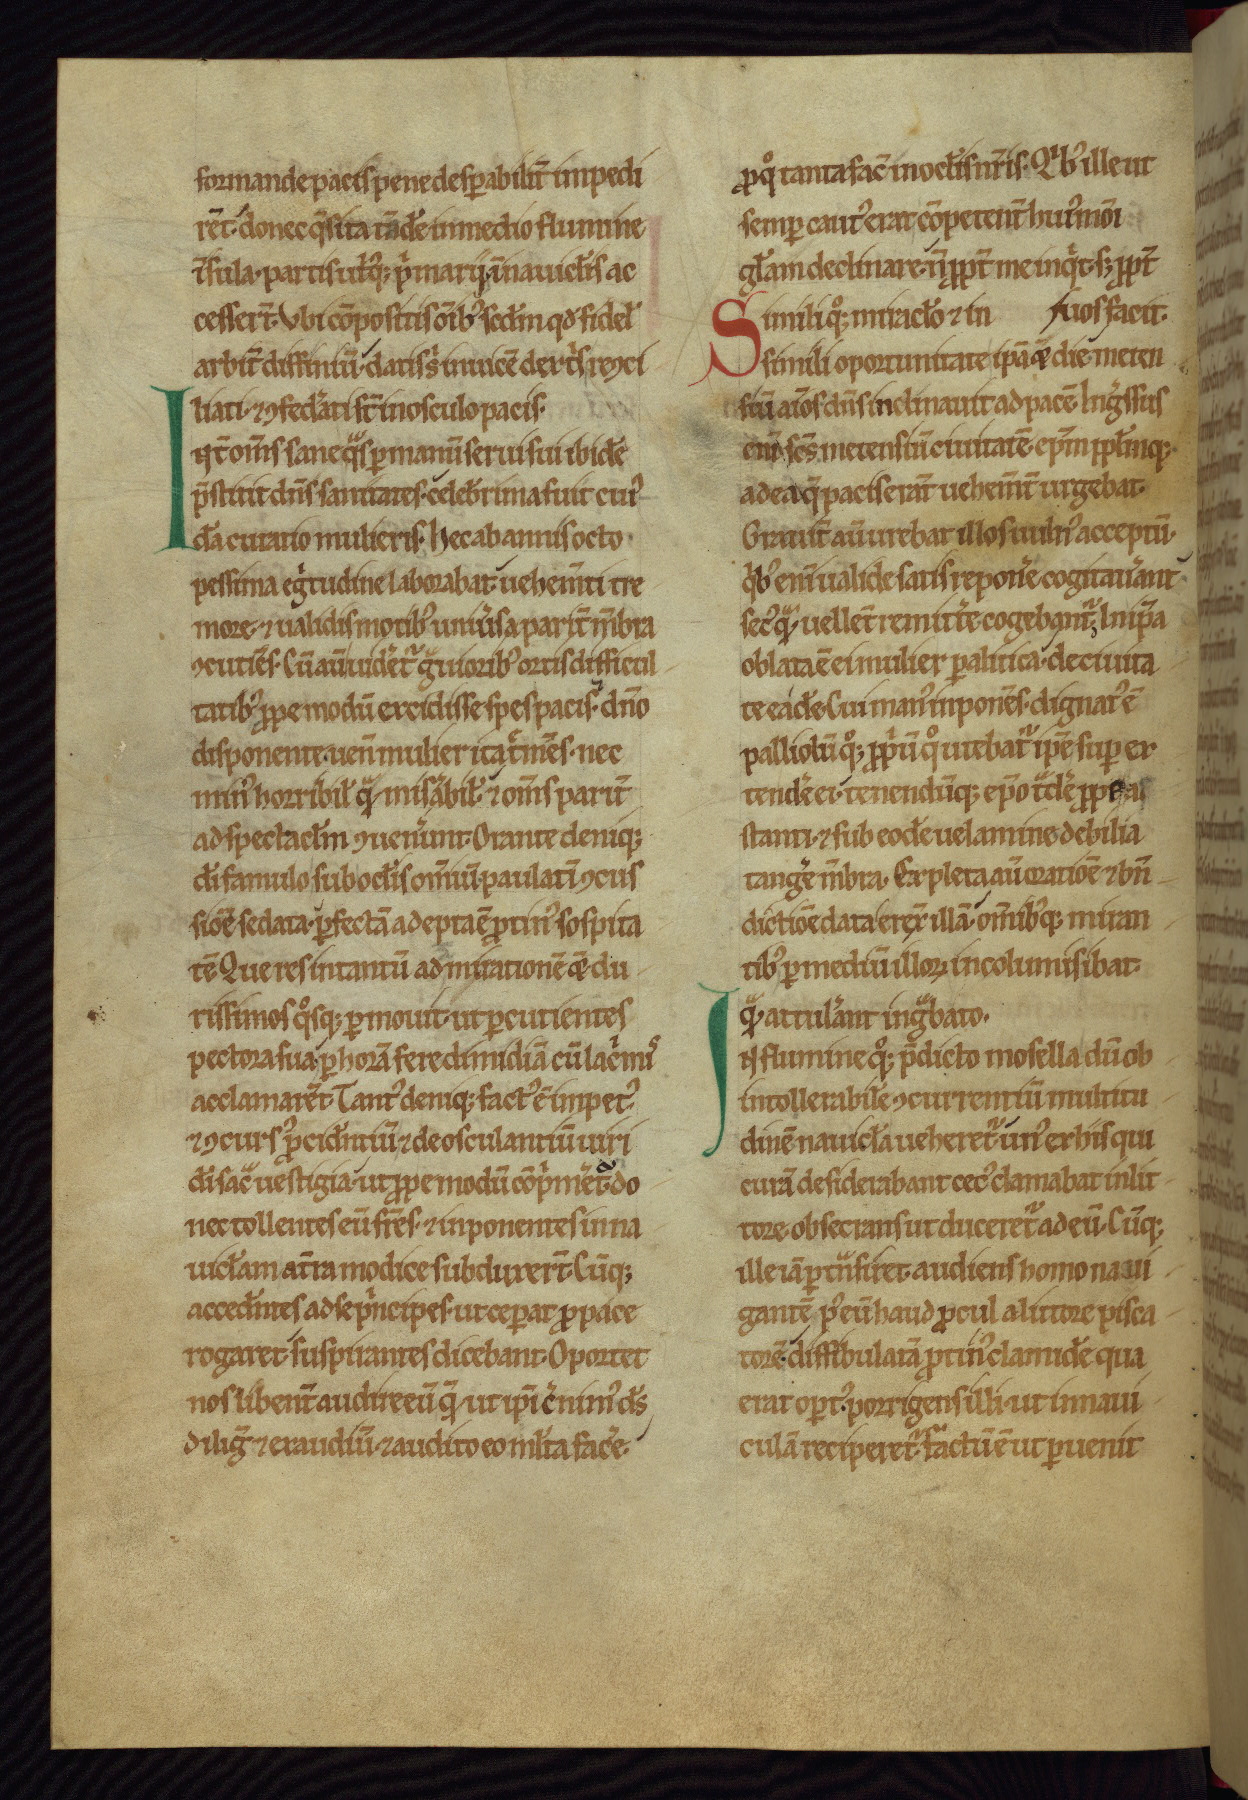 formande pacis pene desꝑabilit̄ impedi
rēt. donec q̄sita tādē in medio flumine
īsula. partis utriꝰq; p̄mariꝗ̄ nauicl̄is ac
cesser̄t. Vbi cōpositis oīb; secl̄m qd fidel̓
arbit̄ diffiniū. datis s̄ inuicē dext̓s reꝯci
liati. ⁊ ꝯfed̓ati st̄ in osculo pacis.
Int̄ om̄s sane q̄s ꝑ manū serui sui ibidē
p̄stitit dn̄s sanitates. celeb̓rima fuit cuiꝰ
dā curatio mulieris. Hec ab annis octo
pessima eg̓tudine laborabat. uehem̄ti tre
more. ⁊ ualidis motibꝰ uniūsa parit̄ m̄bra
ꝯcutiēs. Cū aū uider̄et̄ g̓uioribꝰ ortis difficul
tatibꝰ ꝓpemodū excidisse spes pacis. dn̄o
disponente. uen̄ mulier ita t̓m̄es. nec
minꝰ horribil̓ q̄ mis̓abil̓. ⁊ om̄s parit̄
ad spectacl̄m ꝯuen̓unt. Orante deniq;
dī famulo sub ocl̄is om̄iū. paulatī ꝯcus
siōe sedata. ꝑfectā adepta ē ꝓtinꝰ sospita
tē. Que res in tantū admirationē &̄ du
rissimos qͦsq; ꝑmouit. ut ꝑcutientes
pectora sua ꝑ horā fere dimidiā cū lac̓mis
acclamarēt. Tantꝰ deniq; factꝰ ē impetꝰ.
⁊ ꝯcursꝰ p̄cidentiū ⁊ deosculantiū uiri
dī sac̓ uestigia. ut ꝓpemodū cōp̓m̓et̄. do
nec tollentes eū fr̄es. ⁊ inponentes in na
uicl̄am a t̄ra modice subduxer̄t. Cūq;
accedentes ad se p̓ncipes. ut ceꝑat ꝓ pace
rogaret. suspirantes dicebant. Oportet
nos libent̄ audire eū q̄ ut ip̄i c̓nimꝰ ds̄
dilig̓ ⁊ exaudiū. ⁊ audito eo ml̓ta fac̓e.
ꝓ qͦ tanta fac̄ in ocl̄is nr̄is. Qͥbꝰ ille ut
semꝑ cautꝰ erat cōpetent̄ huiꝰmōi
gl̄am declinare. n̄ ꝓpt̄ me inq̓t. s; ꝓpt̄
Simili qͦq; miracl̄o ⁊ in uos facit.
simili oportunitate ipā &̄ die meten
siū aīos dn̄s inclinauit ad pacē. Ing̓ssus
enī sc̄s metensiū ciuitatē. ep̄m ppl̄mq;
ad ea q̄ pacis erāt uehem̄t̄ urgebat.
Grauit̄ aū urebat illos uulnꝰ acceptū.
q̓bꝰ enī ualide satis repon̓e cogitau̓ant.
secꝰ q̄ uellēt remitt̓e cogebant̄. In ip̄a
oblata ē ei mulier ꝑalitica. de ciuita
te eadē. Cui manꝰ inponēs. dignatꝰ ē
palliolū qͦq; ꝓp̓ū qͦ utebat̄ ip̄e super ex
tend̓e ei. tenendūq; ep̄o t̓d̓e ꝓpe as
stanti. ⁊ sub eodē uelamine debilia
tang̓e m̄bra. Expleta aū oratiōe ⁊ bn̄
dictiōe data erex̄ illā. om̄ibꝰq; miran
tibꝰ ꝑ mediū illoꝝ incolumis ibat.
q̄ attul̓ant in g̓bato.
In flumine qͦq; p̄dicto mosella dū ob
intollerabilē ꝯcurrentiū multitu
dinē nauicl̄a ueheret̄. unꝰ ex his qui
curā desiderabant cecꝰ clamabat in lit
tore. obsecrans ut duceret̄ ad eū. Cūq;
ille iā ꝑt̄nsiret. audiens homo naui
gantē p̓ eū haud ꝓcul a littore pisca
torē. diffibulatā ꝓtinꝰ clamidē qua
erat optꝰ. porrigens illi. ut in naui
culā reciperet̄. Factū ē ut ꝑuenit